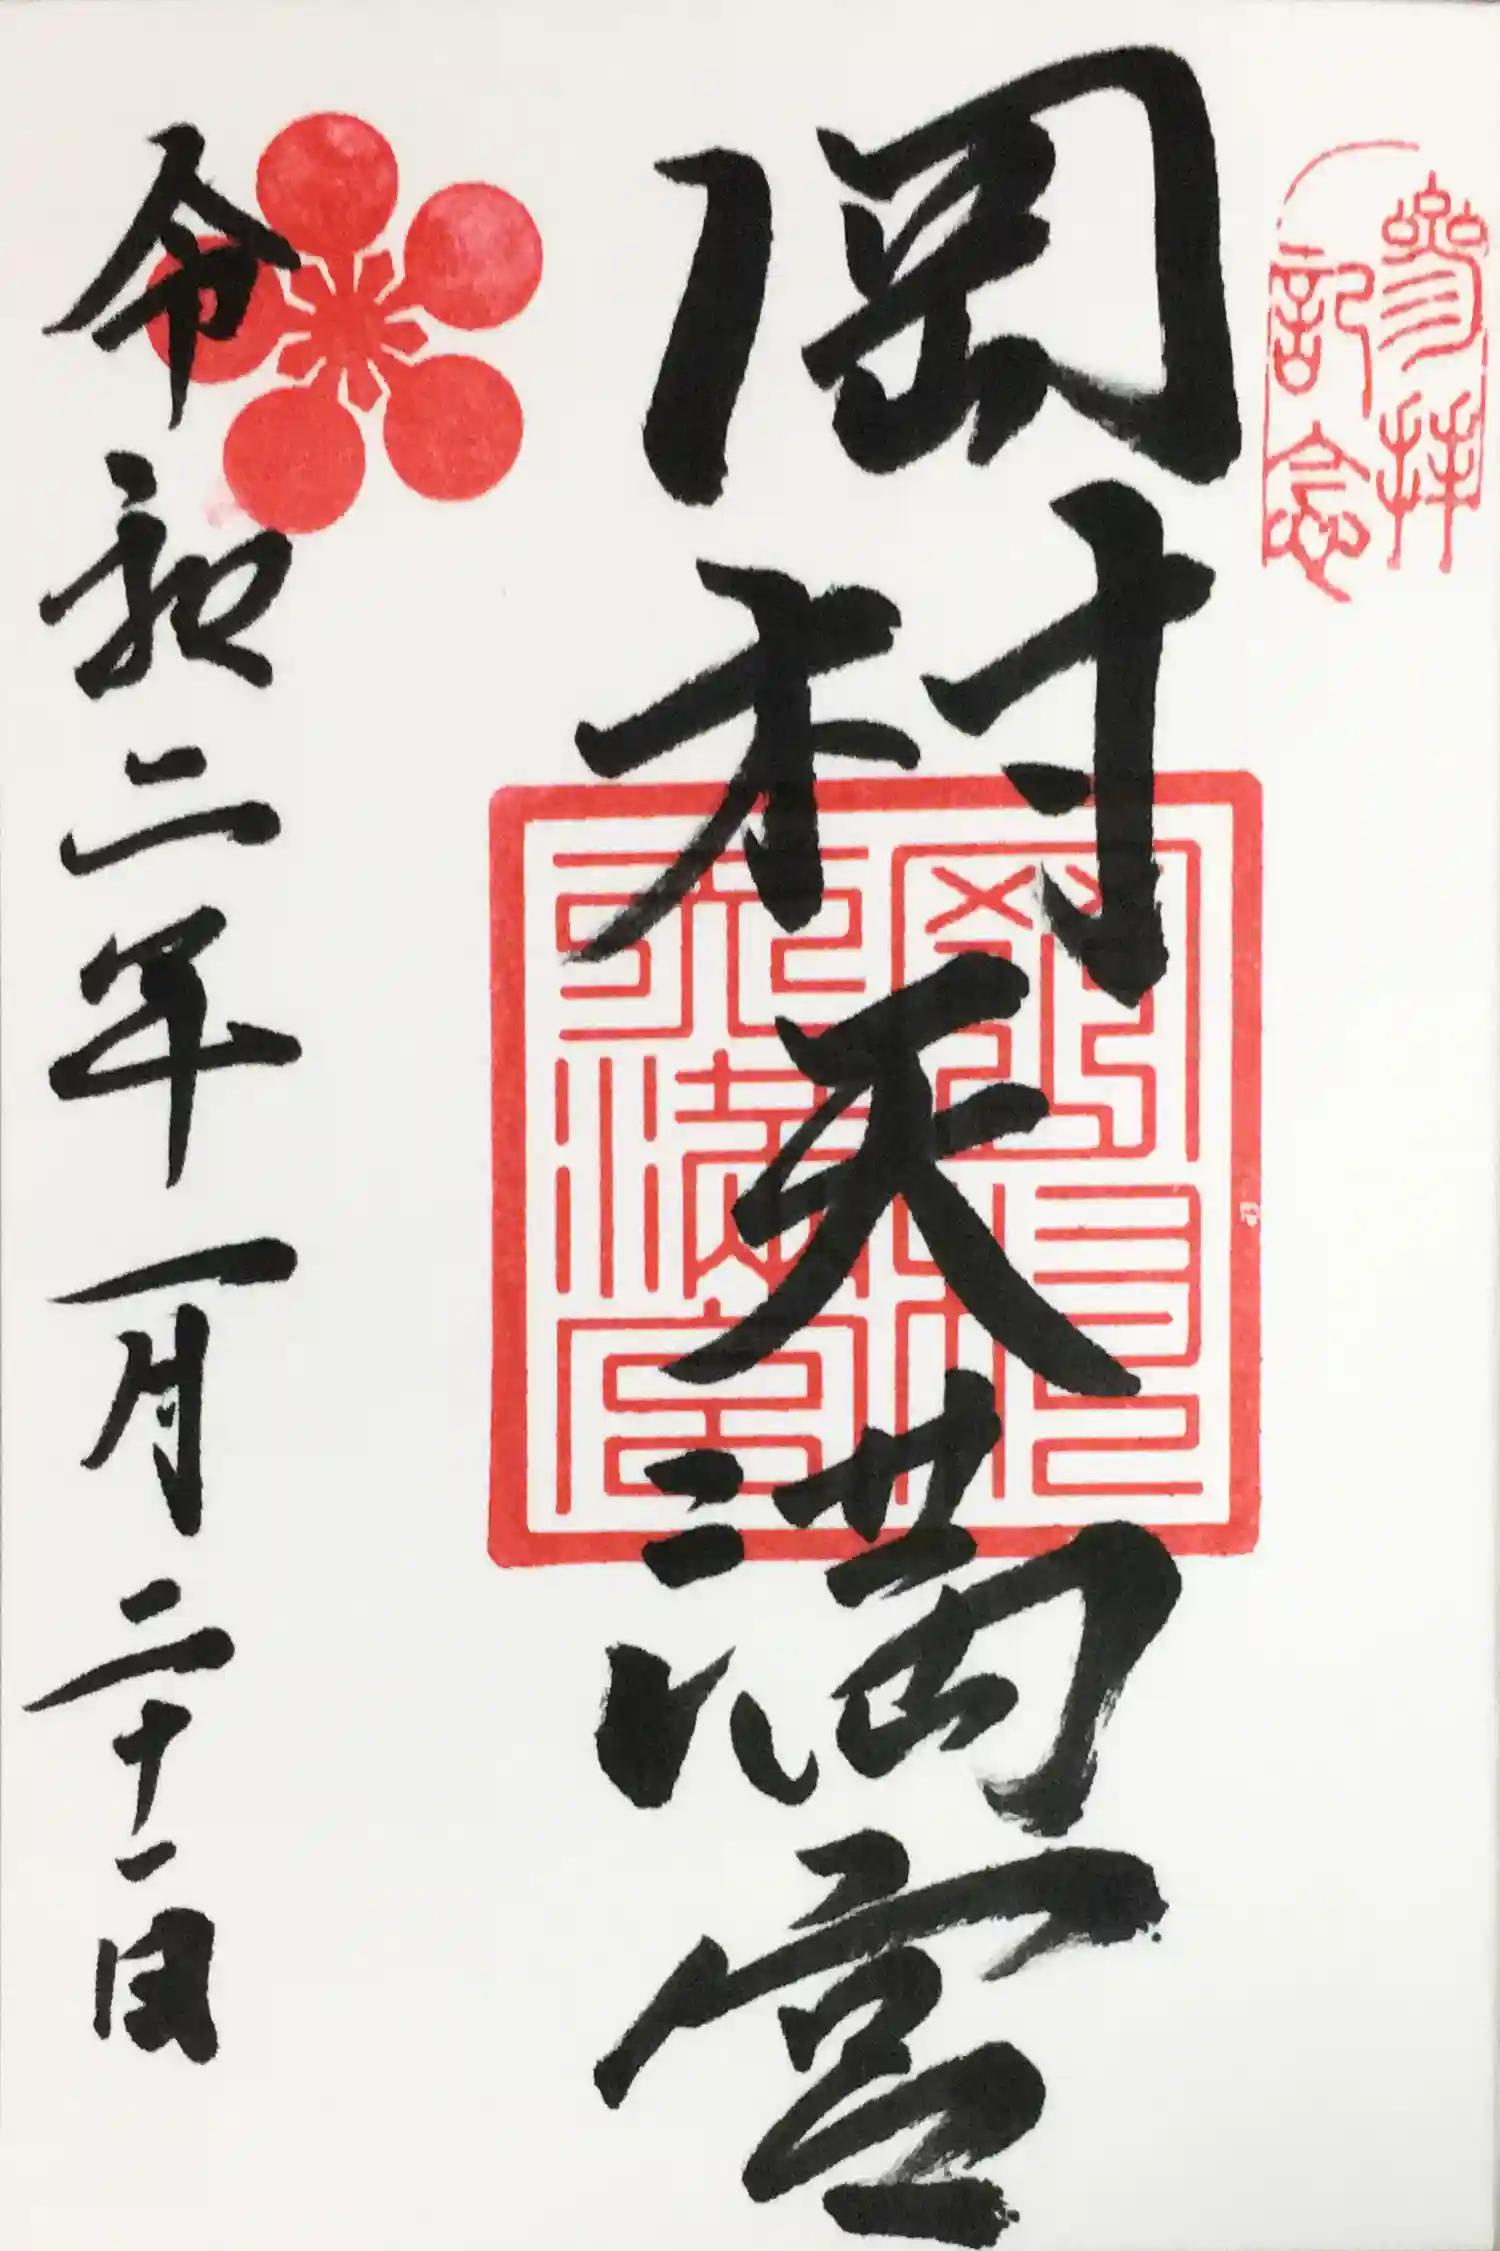 參拝
記念
岡村天満宮
令和二年一月二十一日